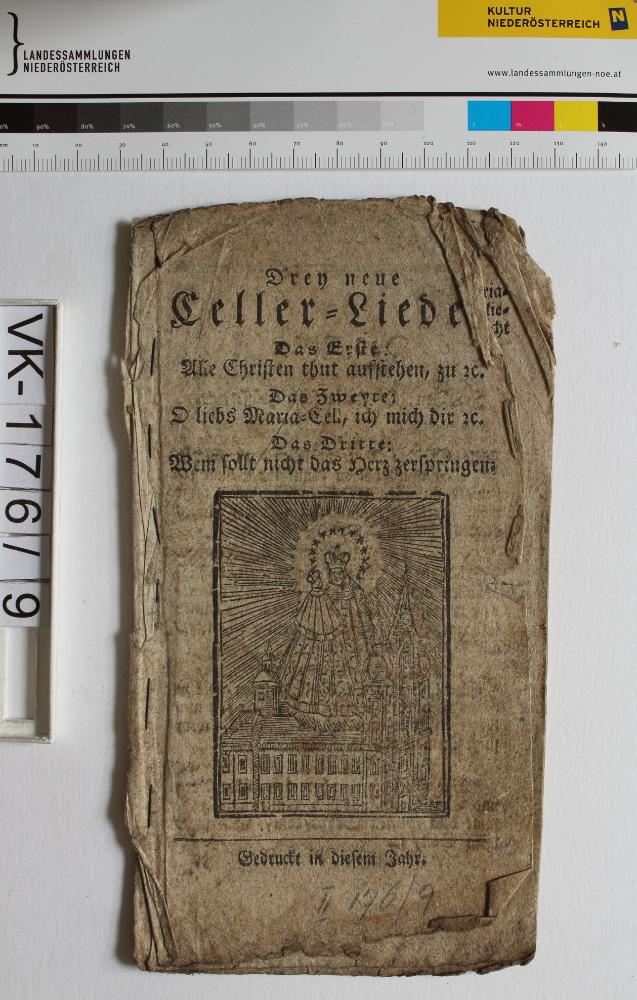 LANDESSAMMLUNGEN
NIEDERÖSTERREICH
KULTUR
NIEDERÖSTERREICH N
www.landessammlungen-noe.at
90% 80% 70% 60% 50% 40% 30% 20% 10% c m y k
mm 10 20 30 40 50 60 70 80 90 100 110 120 130 140
VK-176/9
Drey neue
Celler-Liede
ria-
lie-
cht
Das Erste:
Alle Christen thut aufstehen, zu ꝛc.
Das Zweyte:
O liebs Maria-Cell, ich mich dir ꝛc.
Das Dritte:
Wem sollt nicht das Herz zerspringen:
Gedruckt in diesem Jahr.
I 176/9